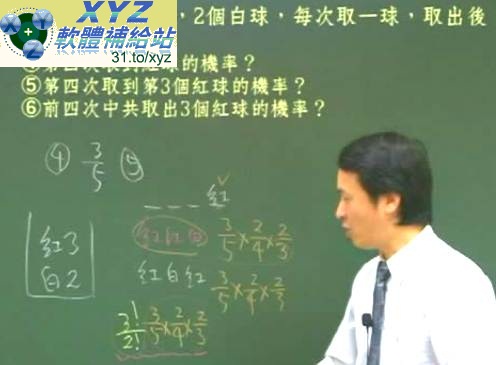 XYZ
軟體補給站
31.to/xyz
，2個白球，每次取一球，取出後
④第四次取到紅球的機率？
⑤第四次取到第3個紅球的機率？
⑥前四次中共取出3個紅球的機率？
④ 3/5 ⑤
_ _ _ 紅
紅3
白2
紅紅白 3/5×2/4×2/3
紅白紅 3/5×2/4×2/3
3!/2! 3/5×2/4×2/3